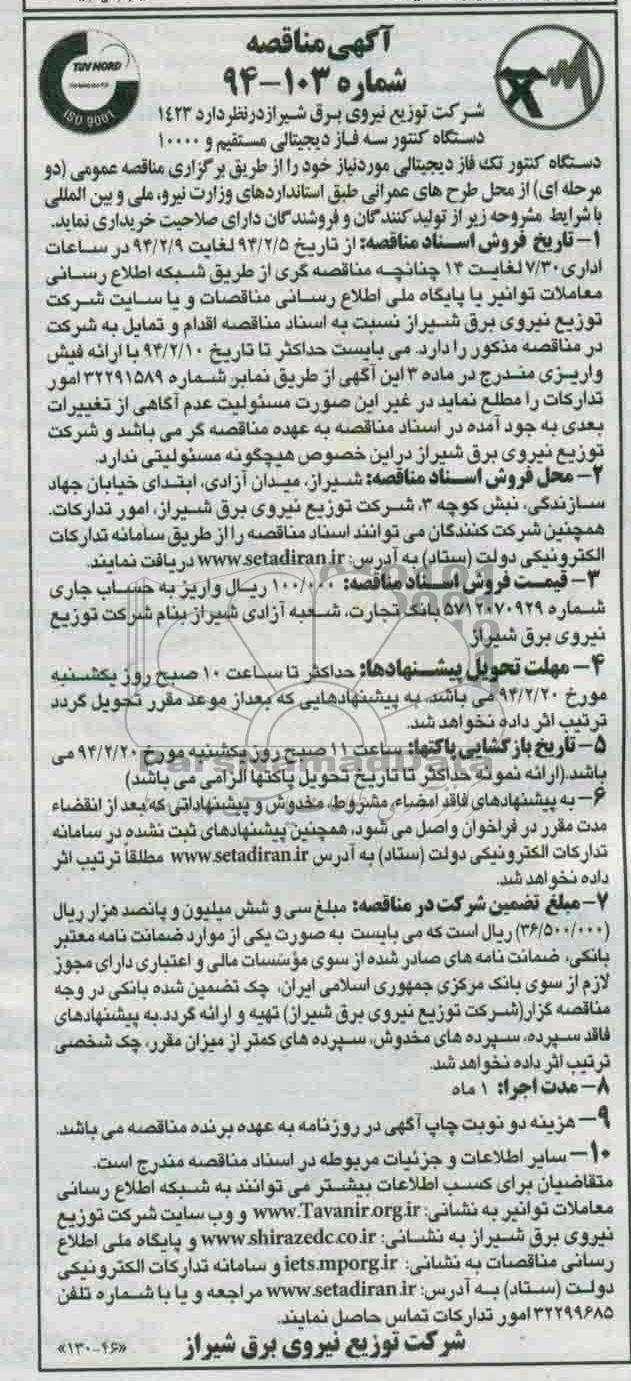 آگهی مناقصه
شماره ۱۰۳-۹۴
TUV NORD
ISO 9001
شرکت توزیع نیروی برق شیراز درنظر دارد ۱۴۲۳
دستگاه کنتور سه فاز دیجیتالی مستقیم و ۱۰۰۰۰
دستگاه کنتور تک فاز دیجیتالی موردنیاز خود را از طریق برگزاری مناقصه عمومی (دو
مرحله ای) از محل طرح های عمرانی طبق استانداردهای وزارت نیرو، ملی و بین المللی
با شرایط مشروحه زیر از تولیدکنندگان و فروشندگان دارای صلاحیت خریداری نماید.
۱- تاریخ فروش اسناد مناقصه: از تاریخ ۹۴/۲/۵ لغایت ۹۴/۲/۹ در ساعات
اداری ۷/۳۰ لغایت ۱۴ چنانچه مناقصه گری از طریق شبکه اطلاع رسانی
معاملات توانیر یا پایگاه ملی اطلاع رسانی مناقصات و یا سایت شرکت
توزیع نیروی برق شیراز نسبت به اسناد مناقصه اقدام و تمایل به شرکت
در مناقصه مذکور را دارد. می بایست حداکثر تا تاریخ ۹۴/۲/۱۰ با ارائه فیش
واریزی مندرج در ماده ۳ این آگهی از طریق نمابر شماره ۳۲۲۹۱۵۸۹ امور
تدارکات را مطلع نماید در غیر این صورت مسئولیت عدم آگاهی از تغییرات
بعدی به جود آمده در اسناد مناقصه به عهده مناقصه گر می باشد و شرکت
توزیع نیروی برق شیراز دراین خصوص هیچگونه مسئولیتی ندارد.
۲- محل فروش اسناد مناقصه: شیراز، میدان آزادی، ابتدای خیابان جهاد
سازندگی، نبش کوچه ۳، شرکت توزیع نیروی برق شیراز، امور تدارکات.
همچنین شرکت کنندگان می توانند اسناد مناقصه را از طریق سامانه تدارکات
الکترونیکی دولت (ستاد) به آدرس: www.setadiran.ir دریافت نمایند.
۳- قیمت فروش اسناد مناقصه: ۱۰۰/۰۰۰ ریال واریز به حساب جاری
شماره ۵۷۱۲۰۷۰۹۲۹ بانک تجارت، شعبه آزادی شیراز بنام شرکت توزیع
نیروی برق شیراز
۴- مهلت تحویل پیشنهادها: حداکثر تا ساعت ۱۰ صبح روز یکشنبه
مورخ ۹۴/۲/۲۰ می باشد، به پیشنهادهایی که بعداز موعد مقرر تحویل گردد
ترتیب اثر داده نخواهد شد.
۵- تاریخ بازگشایی پاکتها: ساعت ۱۱ صبح روز یکشنبه مورخ ۹۴/۲/۲۰ می
باشد.(ارائه نمونه حداکثر تا تاریخ تحویل پاکتها الزامی می باشد)
ParsNamadData
۶- به پیشنهادهای فاقد امضاء، مشروط، مخدوش و پیشنهاداتی که بعد از انقضاء
مدت مقرر در فراخوان واصل می شود، همچنین پیشنهادهای ثبت نشده در سامانه
تدارکات الکترونیکی دولت (ستاد) به آدرس www.setadiran.ir مطلقاً ترتیب اثر
داده نخواهد شد.
۷- مبلغ تضمین شرکت در مناقصه: مبلغ سی و شش میلیون و پانصد هزار ریال
(۳۶/۵۰۰/۰۰۰) ریال است که می بایست به صورت یکی از موارد ضمانت نامه معتبر
بانکی، ضمانت نامه های صادر شده از سوی مؤسسات مالی و اعتباری دارای مجوز
لازم از سوی بانک مرکزی جمهوری اسلامی ایران، چک تضمین شده بانکی در وجه
مناقصه گزار(شرکت توزیع نیروی برق شیراز) تهیه و ارائه گردد.به پیشنهادهای
فاقد سپرده، سپرده های مخدوش، سپرده های کمتر از میزان مقرر، چک شخصی
ترتیب اثر داده نخواهد شد.
۸- مدت اجرا: ۱ ماه
۹- هزینه دو نوبت چاپ آگهی در روزنامه به عهده برنده مناقصه می باشد.
۱۰- سایر اطلاعات و جزئیات مربوطه در اسناد مناقصه مندرج است.
متقاضیان برای کسب اطلاعات بیشتر می توانند به شبکه اطلاع رسانی
معاملات توانیر به نشانی: www.Tavanir.org.ir و وب سایت شرکت توزیع
نیروی برق شیراز به نشانی: www.shirazedc.co.ir و پایگاه ملی اطلاع
رسانی مناقصات به نشانی: iets.mporg.ir و سامانه تدارکات الکترونیکی
دولت (ستاد) به آدرس: www.setadiran.ir مراجعه و یا با شماره تلفن
۳۲۲۹۹۶۸۵ امور تدارکات تماس حاصل نمایند.
شرکت توزیع نیروی برق شیراز
«۱۳۰-۴۶»